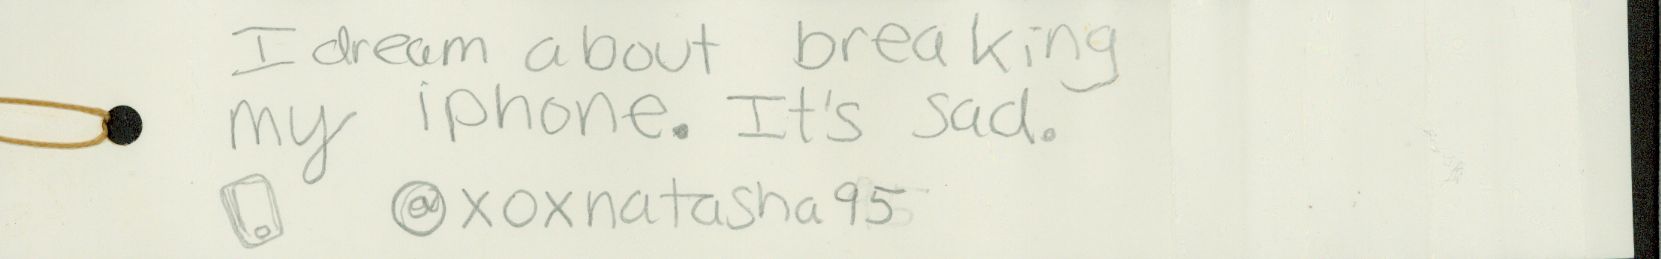 I dream about breaking
my iphone. It's sad.
@xoxnatasha95